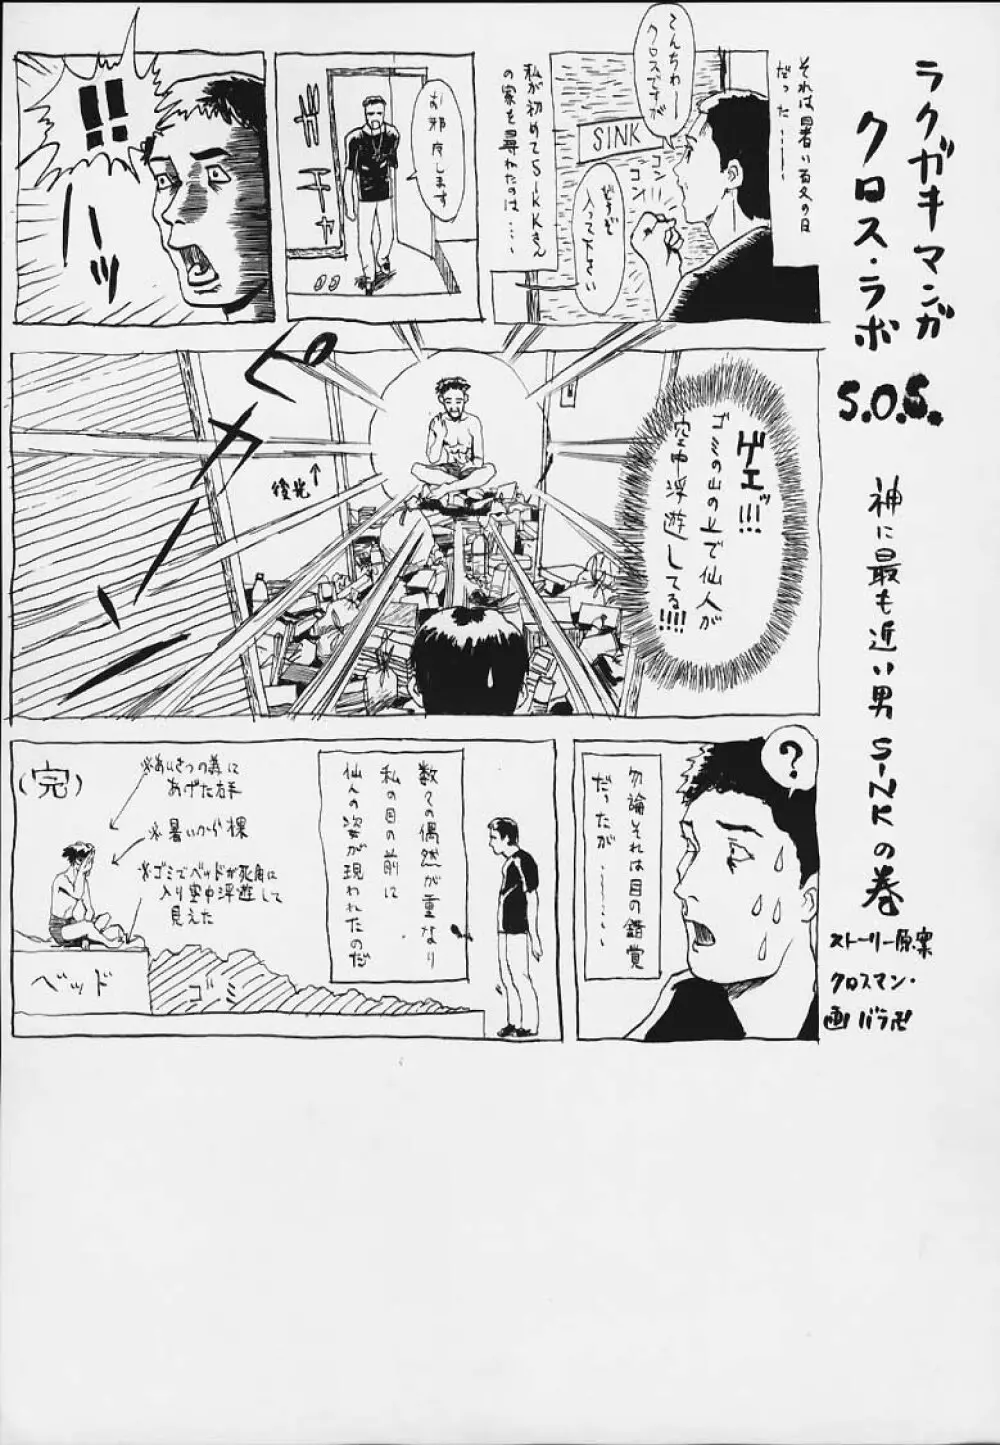 ラクガキマンガ
クロス・ラボ
S.O.S.
神に最も近い男SINKの巻
ストーリー原案
クロスマン・
画バラ卍
それは暑い夏の日
だった・・・
こんちわー
クロスですが
SINK
コン
コン
どうぞ
入って下さい
私が初めてSINKさん
の家を尋ねたのは・・・
お邪魔します
ガチャ
!!
ーッ
ピカーッ
後光
ゲェッ!!!
ゴミの山の上で仙人が
空中浮遊してる!!!!
?
勿論それは目の錯覚
だったが・・・
数々の偶然が重なり
私の目の前に
仙人の姿が現われたのだ
※あいさつの為に
あげた右手
※暑いから裸
※ゴミでベッドが死角に
入り空中浮遊して
見えた
ベッド
ゴミ
(完)